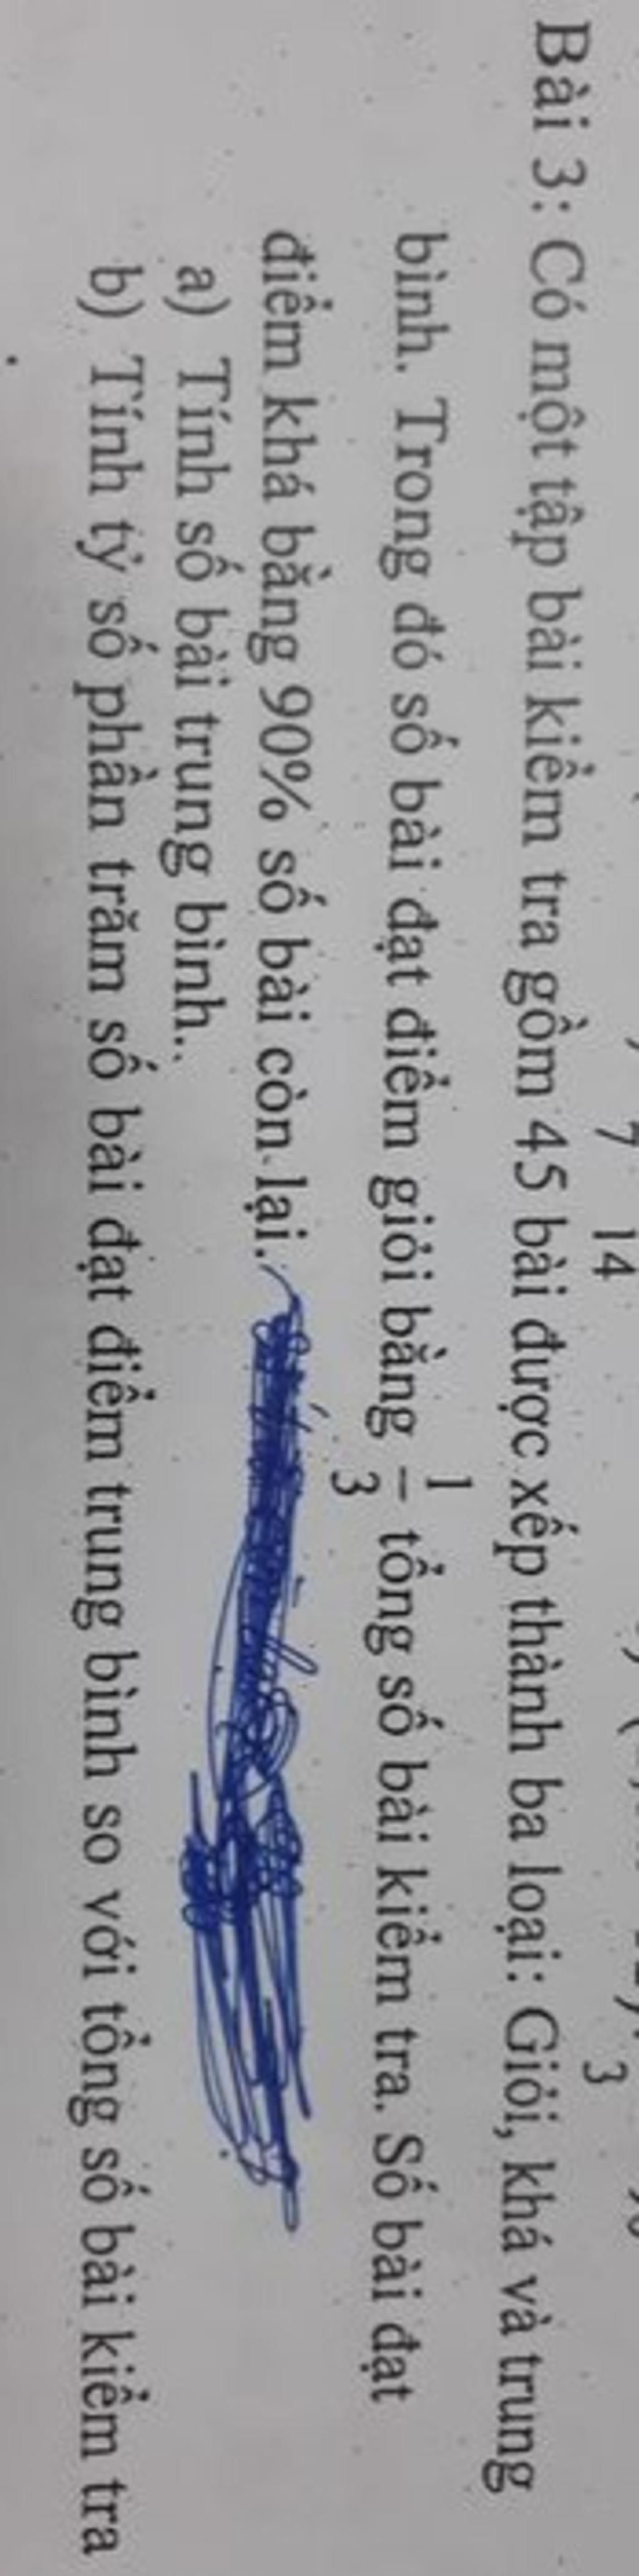 7 14 3
Bài 3: Có một tập bài kiểm tra gồm 45 bài được xếp thành ba loại: Giỏi, khá và trung
bình. Trong đó số bài đạt điểm giỏi bằng 1/3 tổng số bài kiểm tra. Số bài đạt
điểm khá bằng 90% số bài còn lại.
a) Tính số bài trung bình..
b) Tính tỷ số phần trăm số bài đạt điểm trung bình so với tổng số bài kiểm tra